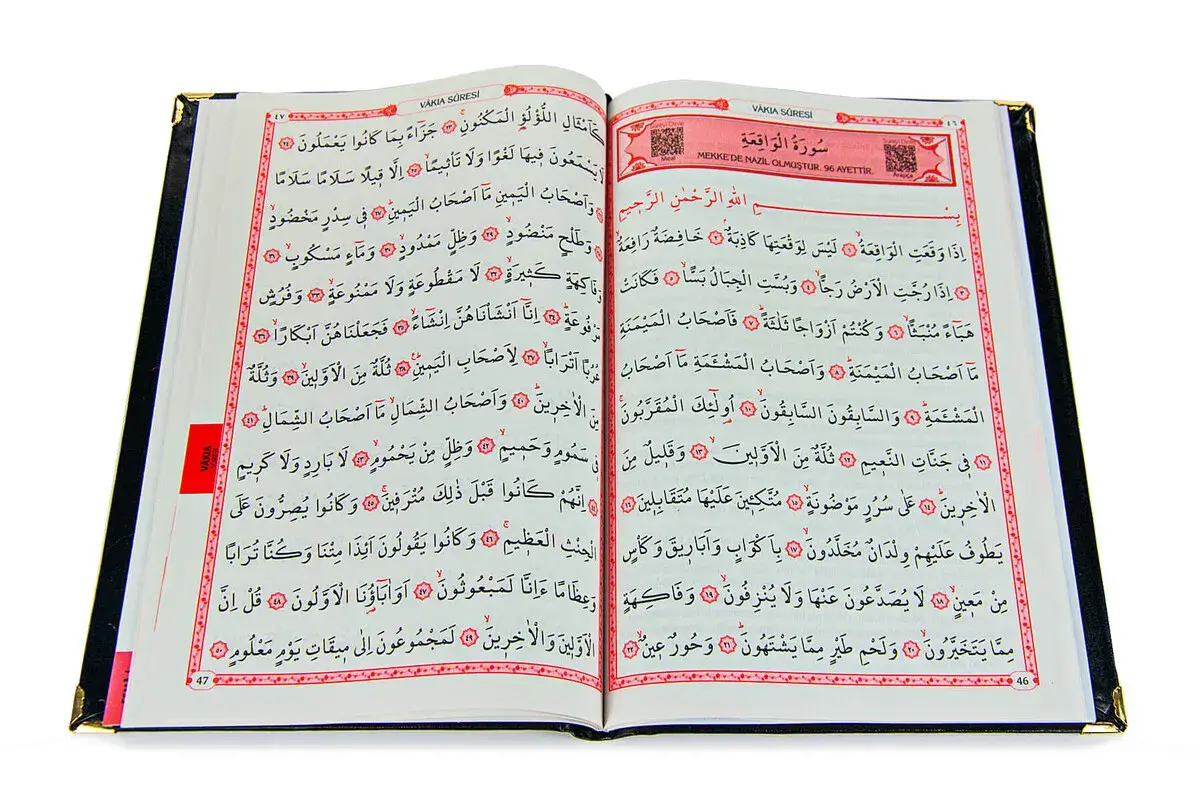 VÂKIA SÛRESİ ٤٦
سُورَةُ الْوَاقِعَةِ
MEKKE'DE NAZİL OLMUŞTUR. 96 AYETTİR.
Meal
Arapça
بِسْــــــــــــــــــمِ اللهِ الرَّحْمٰنِ الرَّحٖيمِ
اِذَا وَقَعَتِ الْوَاقِعَةُۙ ﴿١﴾ لَيْسَ لِوَقْعَتِهَا كَاذِبَةٌۢ ﴿٢﴾ خَافِضَةٌ رَافِعَةٌۙ
﴿٣﴾ اِذَا رُجَّتِ الْاَرْضُ رَجًّاۙ ﴿٤﴾ وَبُسَّتِ الْجِبَالُ بَسًّاۙ ﴿٥﴾ فَكَانَتْ
هَبَٓاءً مُنْبَثًّاۙ ﴿٦﴾ وَكُنْتُمْ اَزْوَاجًا ثَلٰثَةًؕ ﴿٧﴾ فَاَصْحَابُ الْمَيْمَنَةِ
مَٓا اَصْحَابُ الْمَيْمَنَةِؕ ﴿٨﴾ وَاَصْحَابُ الْمَشْـَٔمَةِ مَٓا اَصْحَابُ
الْمَشْـَٔمَةِؕ ﴿٩﴾ وَالسَّابِقُونَ السَّابِقُونَۙ ﴿١٠﴾ اُولٰٓئِكَ الْمُقَرَّبُونَۚ
﴿١١﴾ فٖي جَنَّاتِ النَّعٖيمِ ﴿١٢﴾ ثُلَّةٌ مِنَ الْاَوَّلٖينَۙ ﴿١٣﴾ وَقَلٖيلٌ مِنَ
الْاٰخِرٖينَؕ ﴿١٤﴾ عَلٰى سُرُرٍ مَوْضُونَةٍۙ ﴿١٥﴾ مُتَّكِـٖٔينَ عَلَيْهَا مُتَقَابِلٖينَ ﴿١٦﴾
يَطُوفُ عَلَيْهِمْ وِلْدَانٌ مُخَلَّدُونَۙ ﴿١٧﴾ بِاَكْوَابٍ وَاَبَارٖيقَ وَكَاْسٍ
مِنْ مَعٖينٍۙ ﴿١٨﴾ لَا يُصَدَّعُونَ عَنْهَا وَلَا يُنْزِفُونَۙ ﴿١٩﴾ وَفَاكِهَةٍ
مِمَّا يَتَخَيَّرُونَۙ ﴿٢٠﴾ وَلَحْمِ طَيْرٍ مِمَّا يَشْتَهُونَؕ ﴿٢١﴾ وَحُورٌ عٖينٌۙ ﴿٢٢﴾
46
٤٧ VÂKIA SÛRESİ
كَاَمْثَالِ اللُّؤْلُؤِ الْمَكْنُونِۚ ﴿٢٣﴾ جَزَٓاءً بِمَا كَانُوا يَعْمَلُونَ ﴿٢٤﴾
لَا يَسْمَعُونَ فٖيهَا لَغْوًا وَلَا تَأْثٖيمًاۙ ﴿٢٥﴾ اِلَّا قٖيلًا سَلَامًا سَلَامًا
﴿٢٦﴾ وَاَصْحَابُ الْيَمٖينِ مَٓا اَصْحَابُ الْيَمٖينِؕ ﴿٢٧﴾ فٖي سِدْرٍ مَخْضُودٍۙ
﴿٢٨﴾ وَطَلْحٍ مَنْضُودٍۙ ﴿٢٩﴾ وَظِلٍّ مَمْدُودٍۙ ﴿٣٠﴾ وَمَٓاءٍ مَسْكُوبٍۙ ﴿٣١﴾
وَفَاكِهَةٍ كَثٖيرَةٍۙ ﴿٣٢﴾ لَا مَقْطُوعَةٍ وَلَا مَمْنُوعَةٍۙ ﴿٣٣﴾ وَفُرُشٍ
مَرْفُوعَةٍؕ ﴿٣٤﴾ اِنَّٓا اَنْشَاْنَاهُنَّ اِنْشَٓاءًۙ ﴿٣٥﴾ فَجَعَلْنَاهُنَّ اَبْكَارًاۙ ﴿٣٦﴾
عُرُبًا اَتْرَابًاۙ ﴿٣٧﴾ لِاَصْحَابِ الْيَمٖينِؕ ﴿٣٨﴾ ثُلَّةٌ مِنَ الْاَوَّلٖينَۙ ﴿٣٩﴾ وَثُلَّةٌ
مِنَ الْاٰخِرٖينَؕ ﴿٤٠﴾ وَاَصْحَابُ الشِّمَالِۙ مَٓا اَصْحَابُ الشِّمَالِؕ ﴿٤١﴾
فٖي سَمُومٍ وَحَمٖيمٍۙ ﴿٤٢﴾ وَظِلٍّ مِنْ يَحْمُومٍۙ ﴿٤٣﴾ لَا بَارِدٍ وَلَا كَرٖيمٍ
﴿٤٤﴾ اِنَّهُمْ كَانُوا قَبْلَ ذٰلِكَ مُتْرَفٖينَۚ ﴿٤٥﴾ وَكَانُوا يُصِرُّونَ عَلَى
الْحِنْثِ الْعَظٖيمِۚ ﴿٤٦﴾ وَكَانُوا يَقُولُونَ اَئِذَا مِتْنَا وَكُنَّا تُرَابًا
وَعِظَامًا ءَاِنَّا لَمَبْعُوثُونَۙ ﴿٤٧﴾ اَوَاٰبَٓاؤُنَا الْاَوَّلُونَ ﴿٤٨﴾ قُلْ اِنَّ
الْاَوَّلٖينَ وَالْاٰخِرٖينَۙ ﴿٤٩﴾ لَمَجْمُوعُونَ اِلٰى مٖيقَاتِ يَوْمٍ مَعْلُومٍ ﴿٥٠﴾
47
VÂKIA